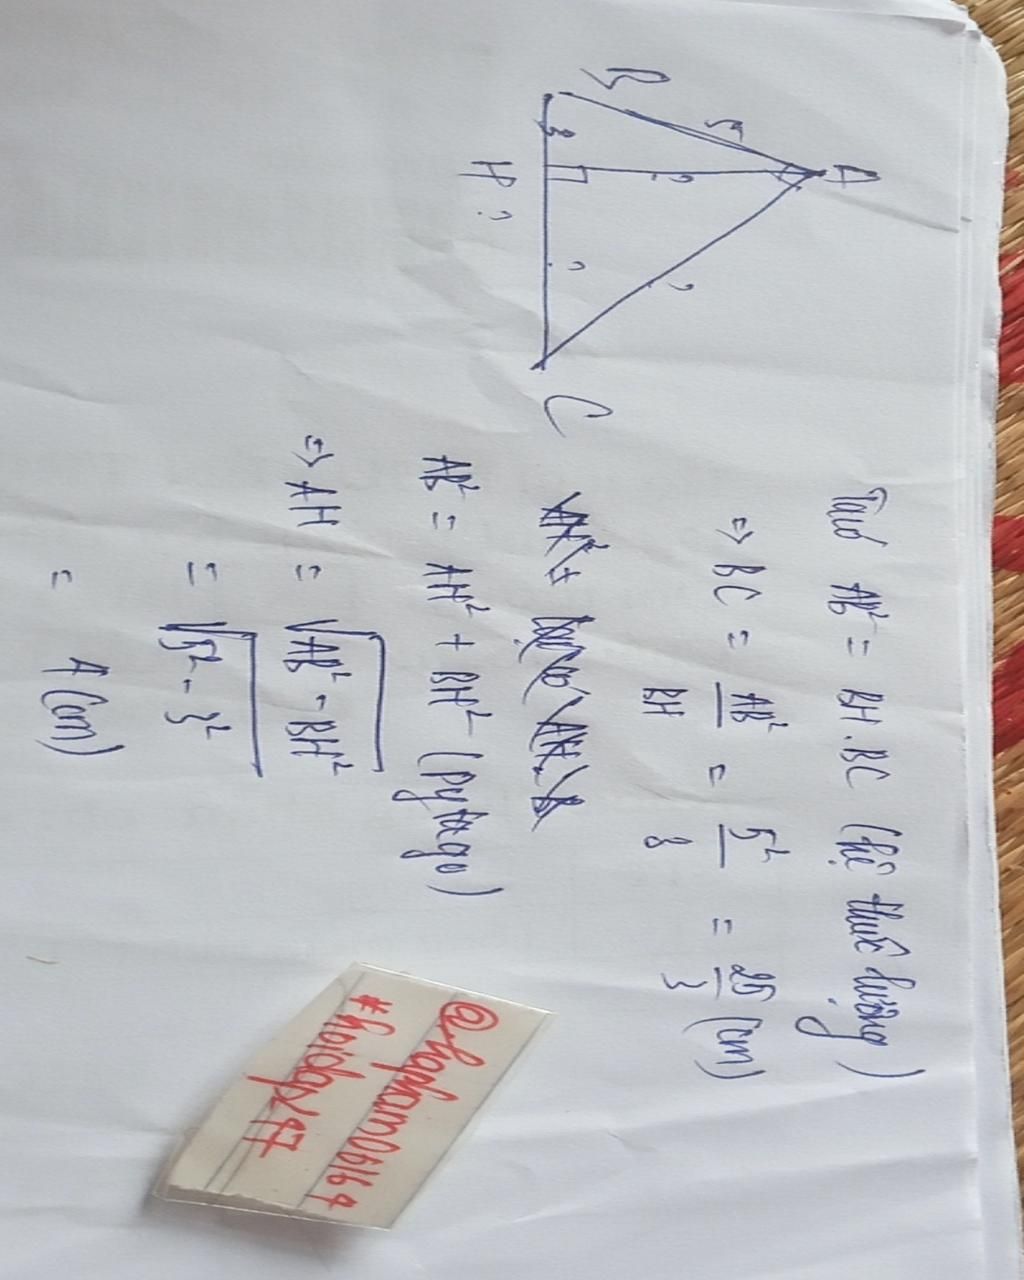 A
B
5
3
?
?
?
H
?
C
Taco AB² = BH.BC (hệ thức lượng)
=> BC = AB²/BH = 5²/3 = 25/3 (cm)
AB² = AH² + BH² (pytago)
=> AH = √AB² - BH²
= √5² - 3²
= 4 (cm)
#hoidap247